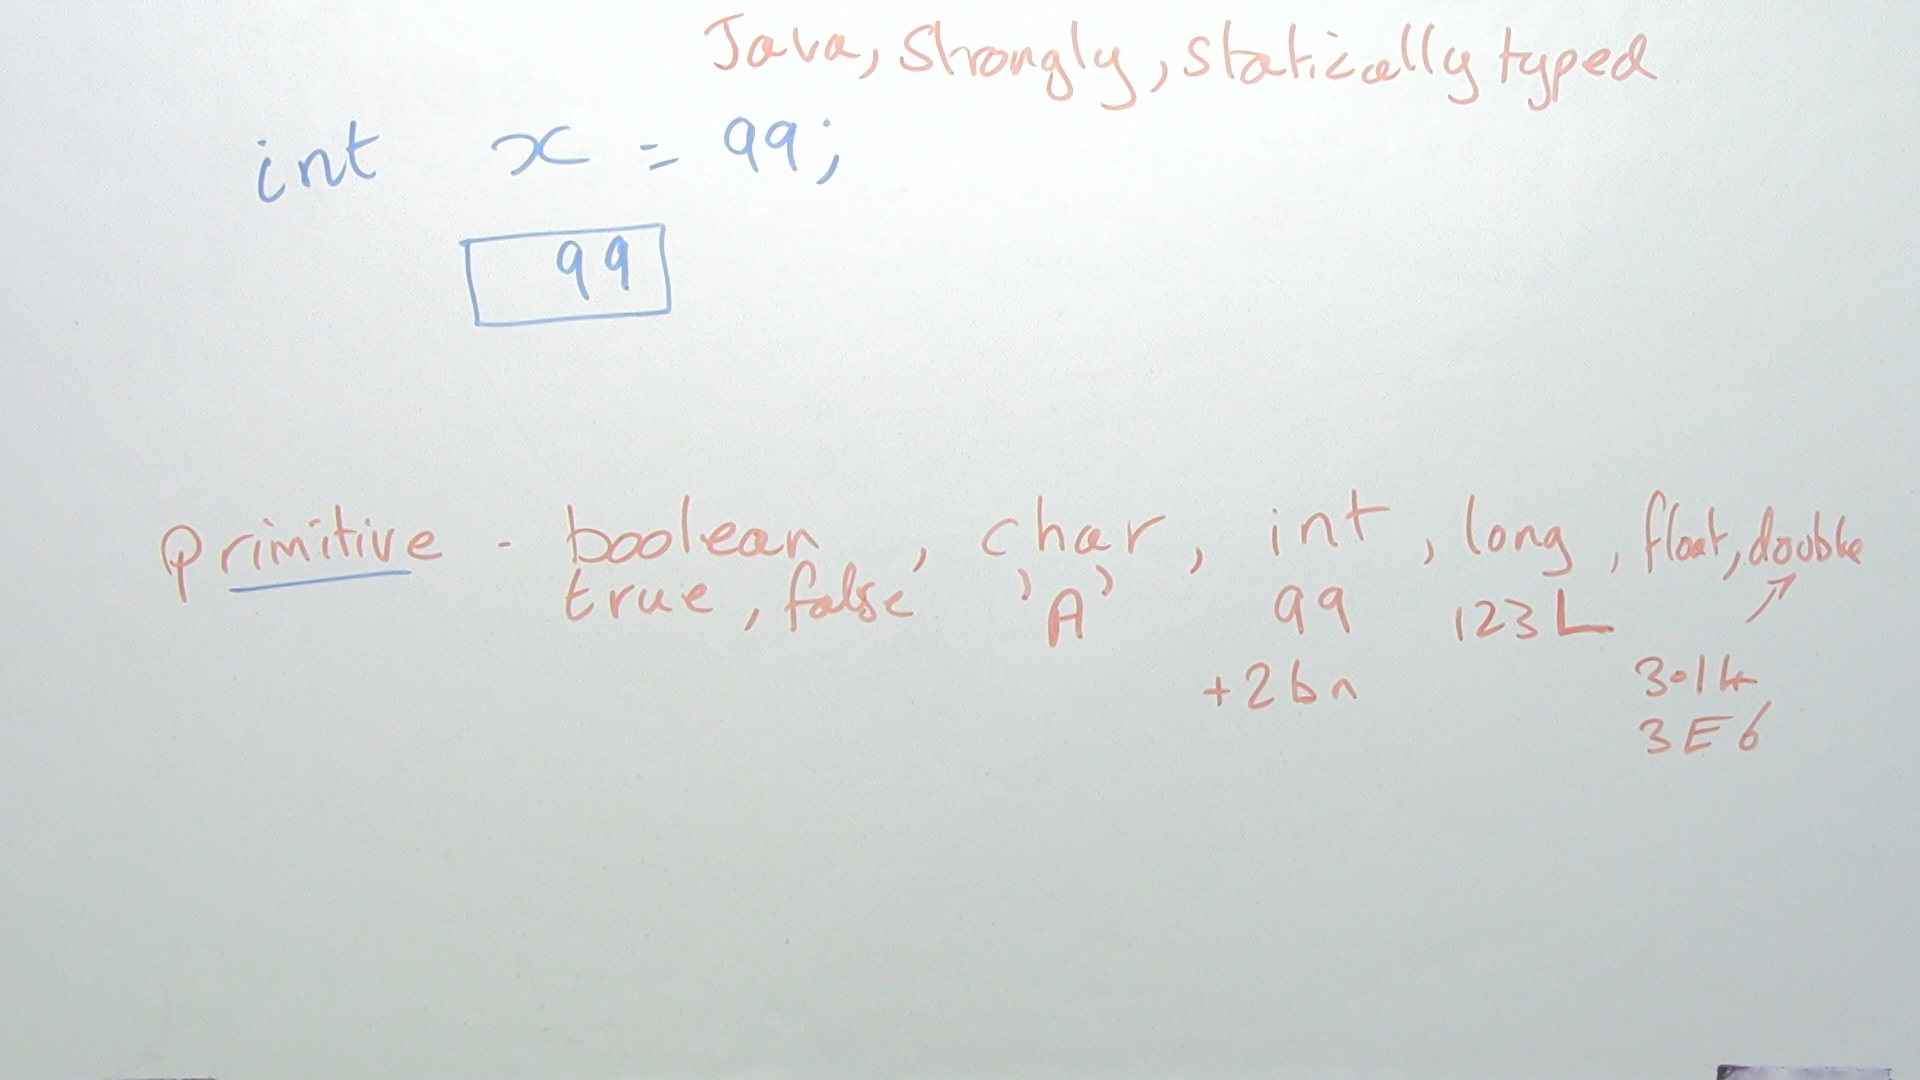 Java, Strongly, statically typed
int x = 99;
99
primitive - boolean, char, int, long, float, double
true, false 'A' 99 123L
+2bn 3.14
3E6